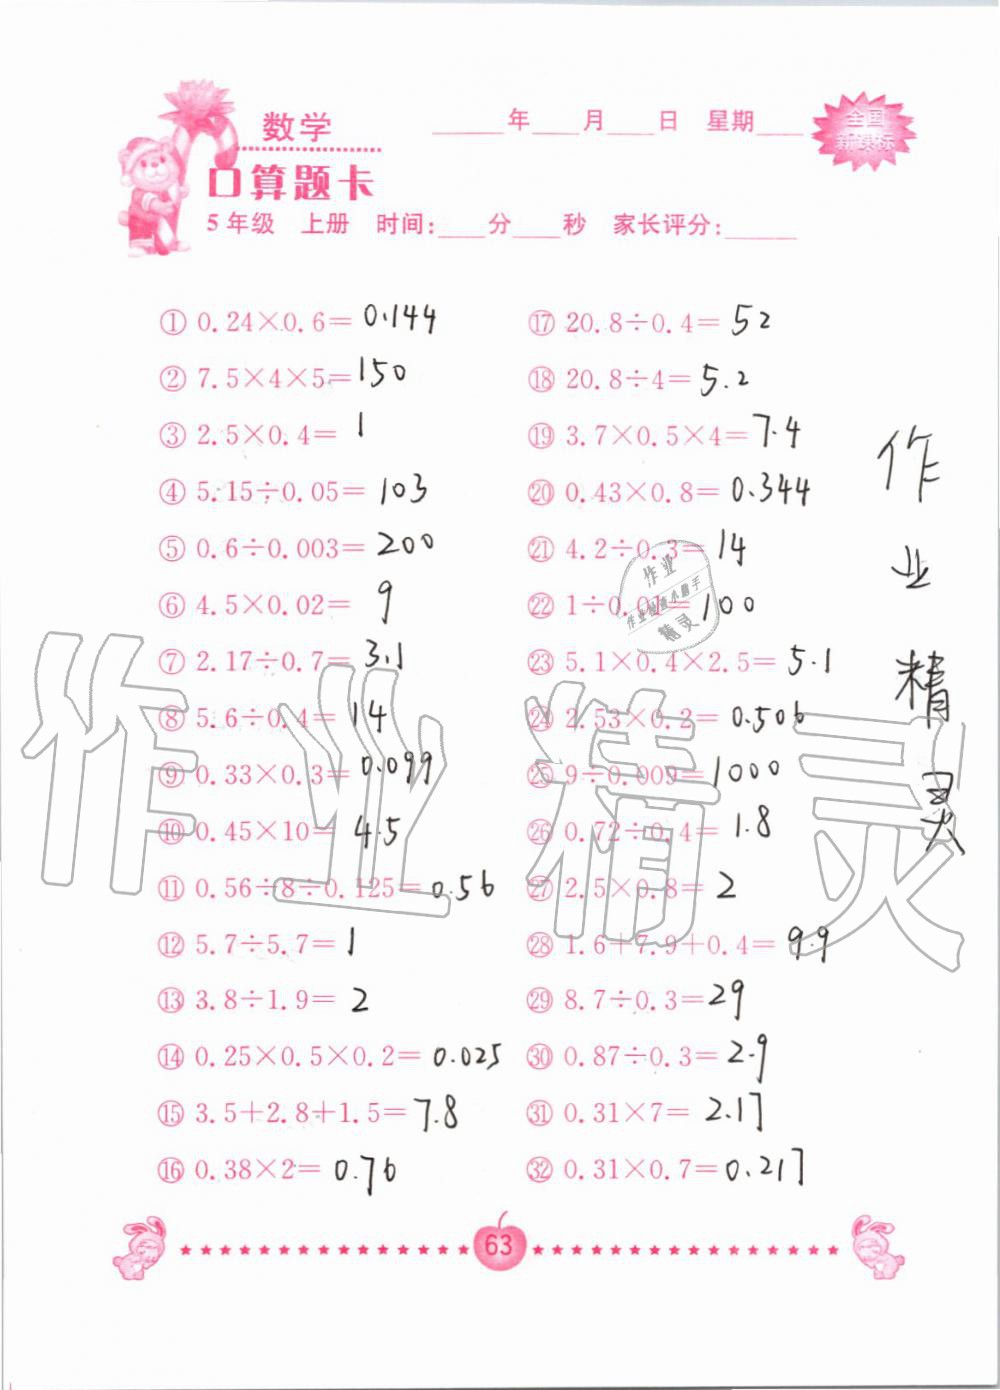 数学
____年____月____日 星期____
全国
新课标
口算题卡
5年级 上册 时间:____分____秒 家长评分:______
① 0.24×0.6= 0.144
② 7.5×4×5= 150
③ 2.5×0.4= 1
④ 5.15÷0.05= 103
⑤ 0.6÷0.003= 200
⑥ 4.5×0.02= 9
⑦ 2.17÷0.7= 3.1
⑧ 5.6÷0.4= 14
⑨ 0.33×0.3= 0.099
⑩ 0.45×10= 4.5
⑪ 0.56÷8÷0.125= 0.56
⑫ 5.7÷5.7= 1
⑬ 3.8÷1.9= 2
⑭ 0.25×0.5×0.2= 0.025
⑮ 3.5+2.8+1.5= 7.8
⑯ 0.38×2= 0.76
⑰ 20.8÷0.4= 52
⑱ 20.8÷4= 5.2
⑲ 3.7×0.5×4= 7.4
⑳ 0.43×0.8= 0.344
㉑ 4.2÷0.3= 14
㉒ 1÷0.01= 100
㉓ 5.1×0.4×2.5= 5.1
㉔ 2.53×0.2= 0.506
㉕ 9÷0.009= 1000
㉖ 0.72÷0.4= 1.8
㉗ 2.5×0.8= 2
㉘ 1.6+7.9+0.4= 9.9
㉙ 8.7÷0.3= 29
㉚ 0.87÷0.3= 2.9
㉛ 0.31×7= 2.17
㉜ 0.31×0.7= 0.217
作业精灵
作业
作业检查小助手
精灵
作业精灵
63